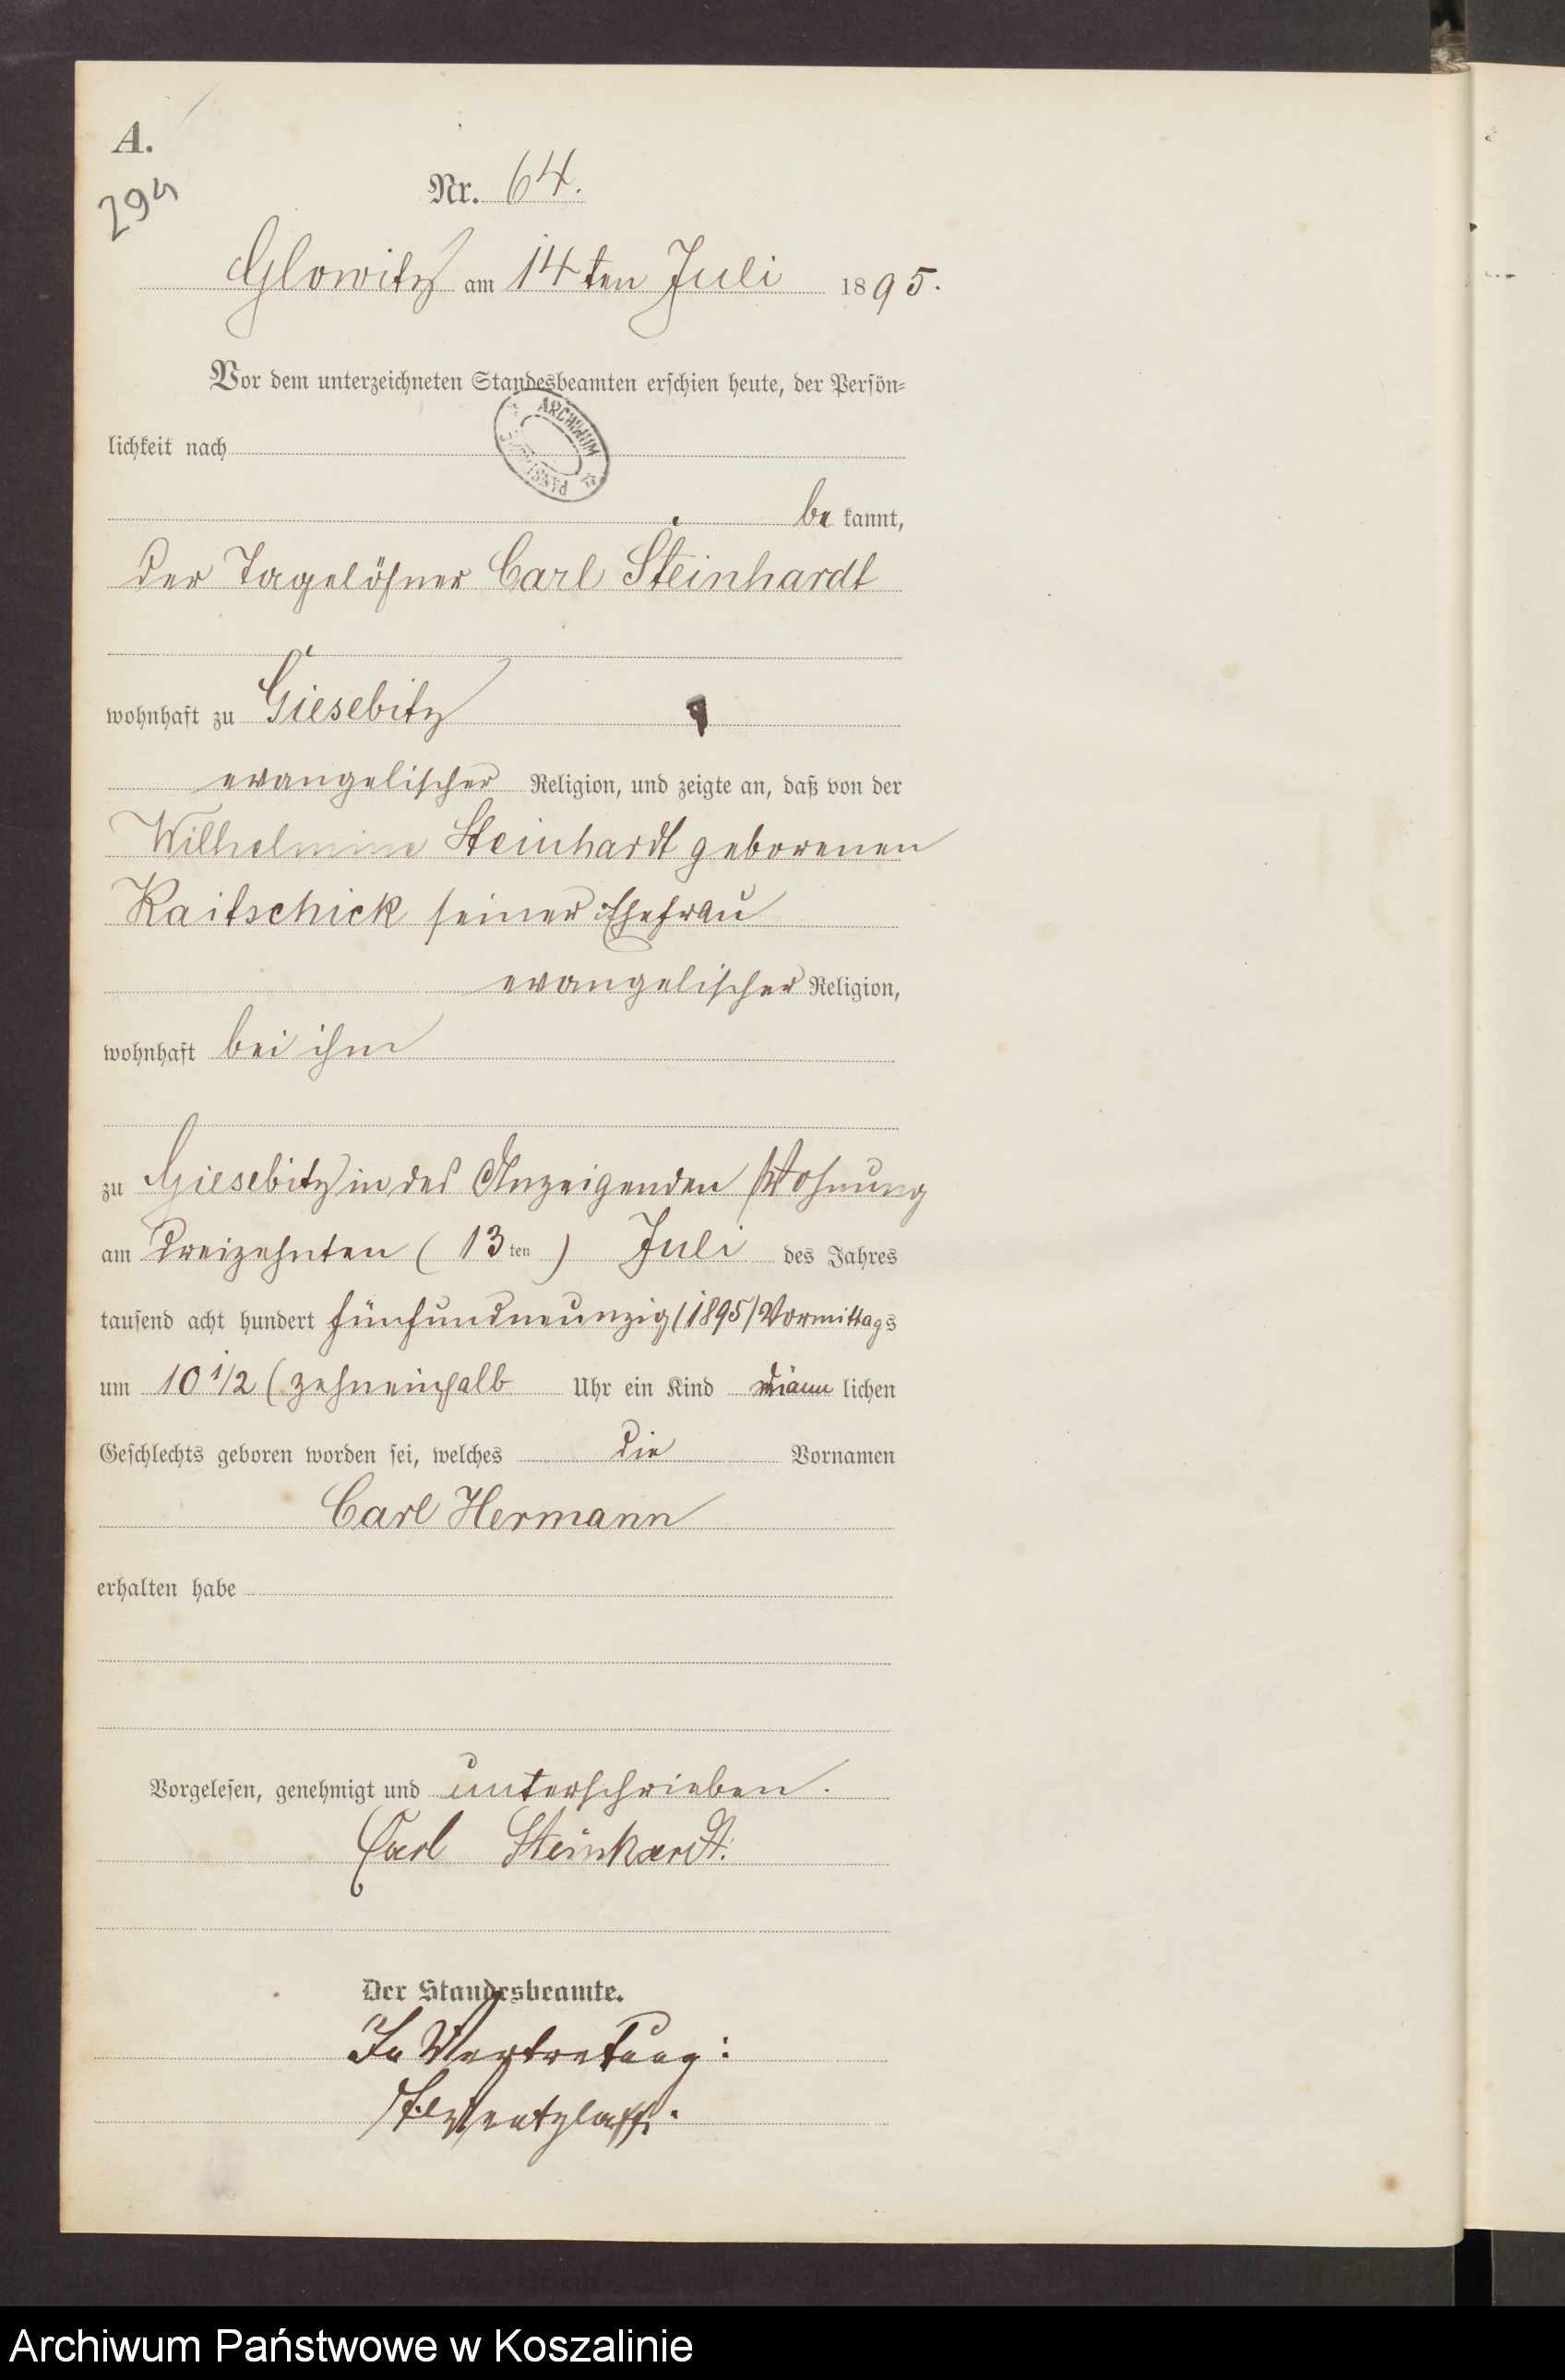 A.
294
Nr. 64.
Glowitz am 14ten Juli 1895.
Vor dem unterzeichneten Standesbeamten erschien heute, der Persön-
lichkeit nach
ARCHIWUM
be kannt,
der Tagelöhner Carl Steinhardt
wohnhaft zu Giesebitz
evangelischer Religion, und zeigte an, daß von der
Wilhelmine Steinhardt geborenen
Kaitschick seiner Ehefrau
evangelischer Religion,
wohnhaft bei ihm
zu Giesebitz in des Anzeigenden Wohnung
am dreizehnten (13ten) Juli des Jahres
tausend acht hundert fünfundneunzig (1895) Vormittags
um 10 1/2 (zehneinhalb Uhr ein Kind männ lichen
Geschlechts geboren worden sei, welches die Vornamen
Carl Hermann
erhalten habe
Vorgelesen, genehmigt und unterschrieben.
Carl Steinhardt.
Der Standesbeamte.
In Vertretung:
Archiwum Państwowe w Koszalinie